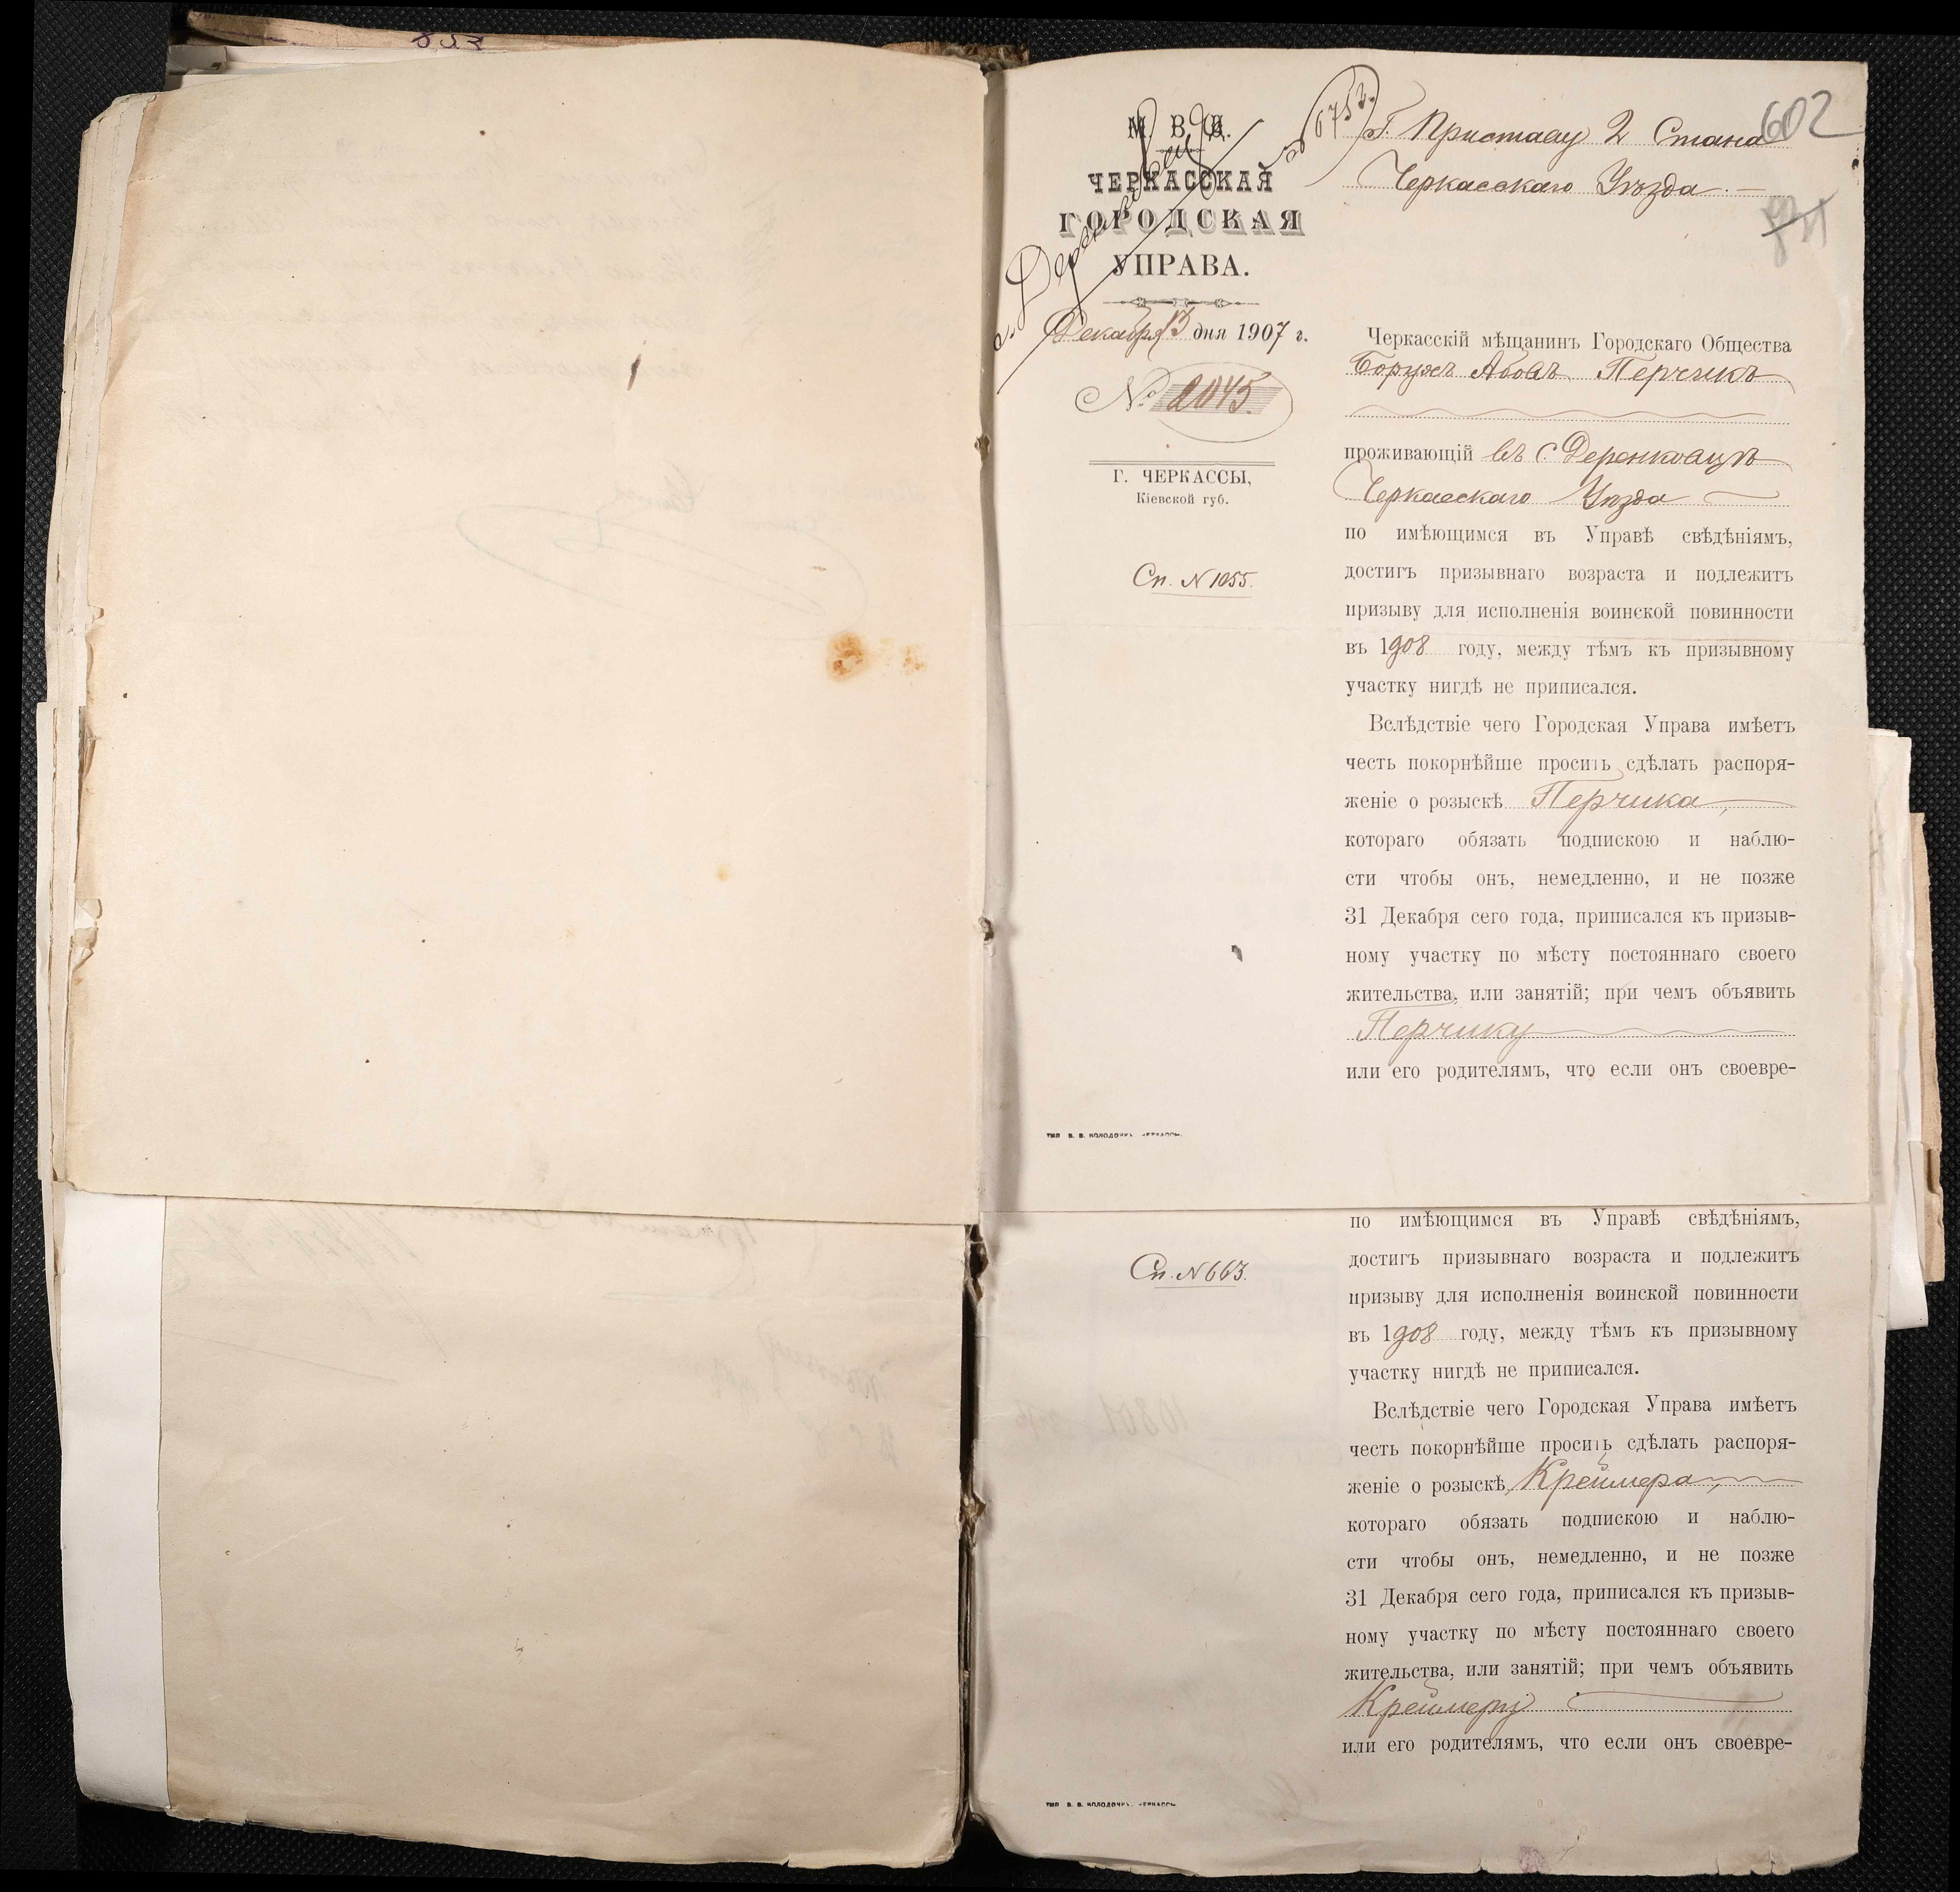 602
М. В. Д.
ЧЕРКАССКАЯ
ГОРОДСКАЯ
УПРАВА.
Декабря 13 дня 1907 г.
№ 2045.
Г. ЧЕРКАССЫ,
Кіевской губ.
Сп. N 1055.
Г. Приставу 2 Стана
Черкасскаго Уѣзда.
Черкасскій мѣщанинъ Городскаго Общества
Борухъ Абовъ Перчикъ
проживающій въ с. Деренковцѣ
Черкасскаго Уѣзда
по имѣющимся въ Управѣ свѣдѣніямъ,
достигъ призывнаго возраста и подлежитъ
призыву для исполненія воинской повинности
въ 1908 году, между тѣмъ къ призывному
участку нигдѣ не приписался.
Вслѣдствіе чего Городская Управа имѣетъ
честь покорнѣйше просить сдѣлать распоря-
женіе о розыскѣ Перчика,
котораго обязать подпискою и наблю-
сти чтобы онъ, немедленно, и не позже
31 Декабря сего года, приписался къ призыв-
ному участку по мѣсту постояннаго своего
жительства, или занятій; при чемъ объявить
Перчику
или его родителямъ, что если онъ своевре-
ТИП В. В. КОЛОДОЧКЪ. ЧЕРКАССЫ.
по имѣющимся въ Управѣ свѣдѣніямъ,
Сп. N 663.
достигъ призывнаго возраста и подлежитъ
призыву для исполненія воинской повинности
въ 1908 году, между тѣмъ къ призывному
участку нигдѣ не приписался.
Вслѣдствіе чего Городская Управа имѣетъ
честь покорнѣйше просить сдѣлать распоря-
женіе о розыскѣ Креймера,
котораго обязать подпискою и наблю-
сти чтобы онъ, немедленно, и не позже
31 Декабря сего года, приписался къ призыв-
ному участку по мѣсту постояннаго своего
жительства, или занятій; при чемъ объявить
Креймеру
или его родителямъ, что если онъ своевре-
ТИП В. В. КОЛОДОЧКЪ. ЧЕРКАССЫ